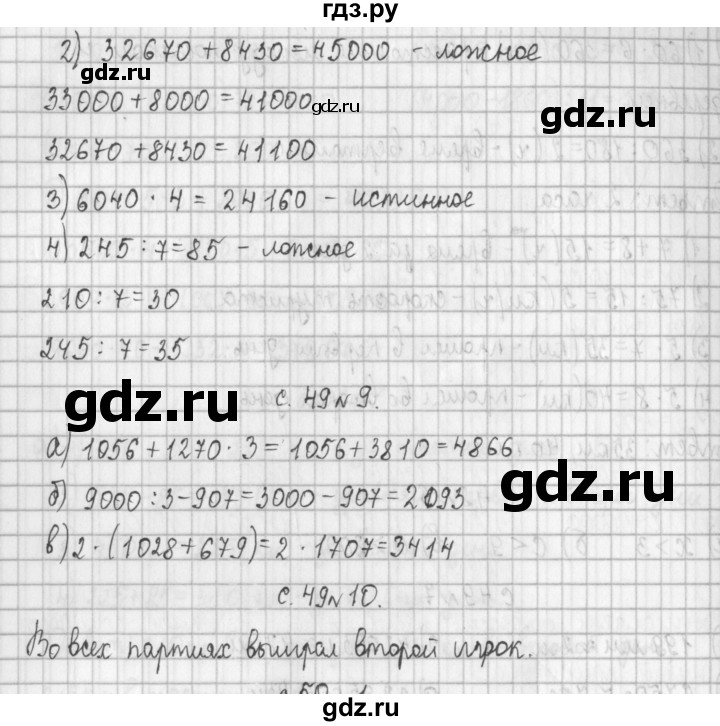 гдз.ру
2) 32670 + 8430 = 45000 - ложное
gdz.ru
33000 + 8000 = 41000
gdz.ru
32670 + 8430 = 41100
3) 6040 · 4 = 24160 - истинное
4) 245 : 7 = 85 - ложное
210 : 7 = 30
245 : 7 = 35
gdz.ru
с. 49 № 9.
а) 1056 + 1270 · 3 = 1056 + 3810 = 4866
gdz.ru
б) 9000 : 3 - 907 = 3000 - 907 = 2093
в) 2 · (1028 + 679) = 2 · 1707 = 3414
с. 49 № 10.
Во всех партиях выиграл второй игрок.
gdz.ru